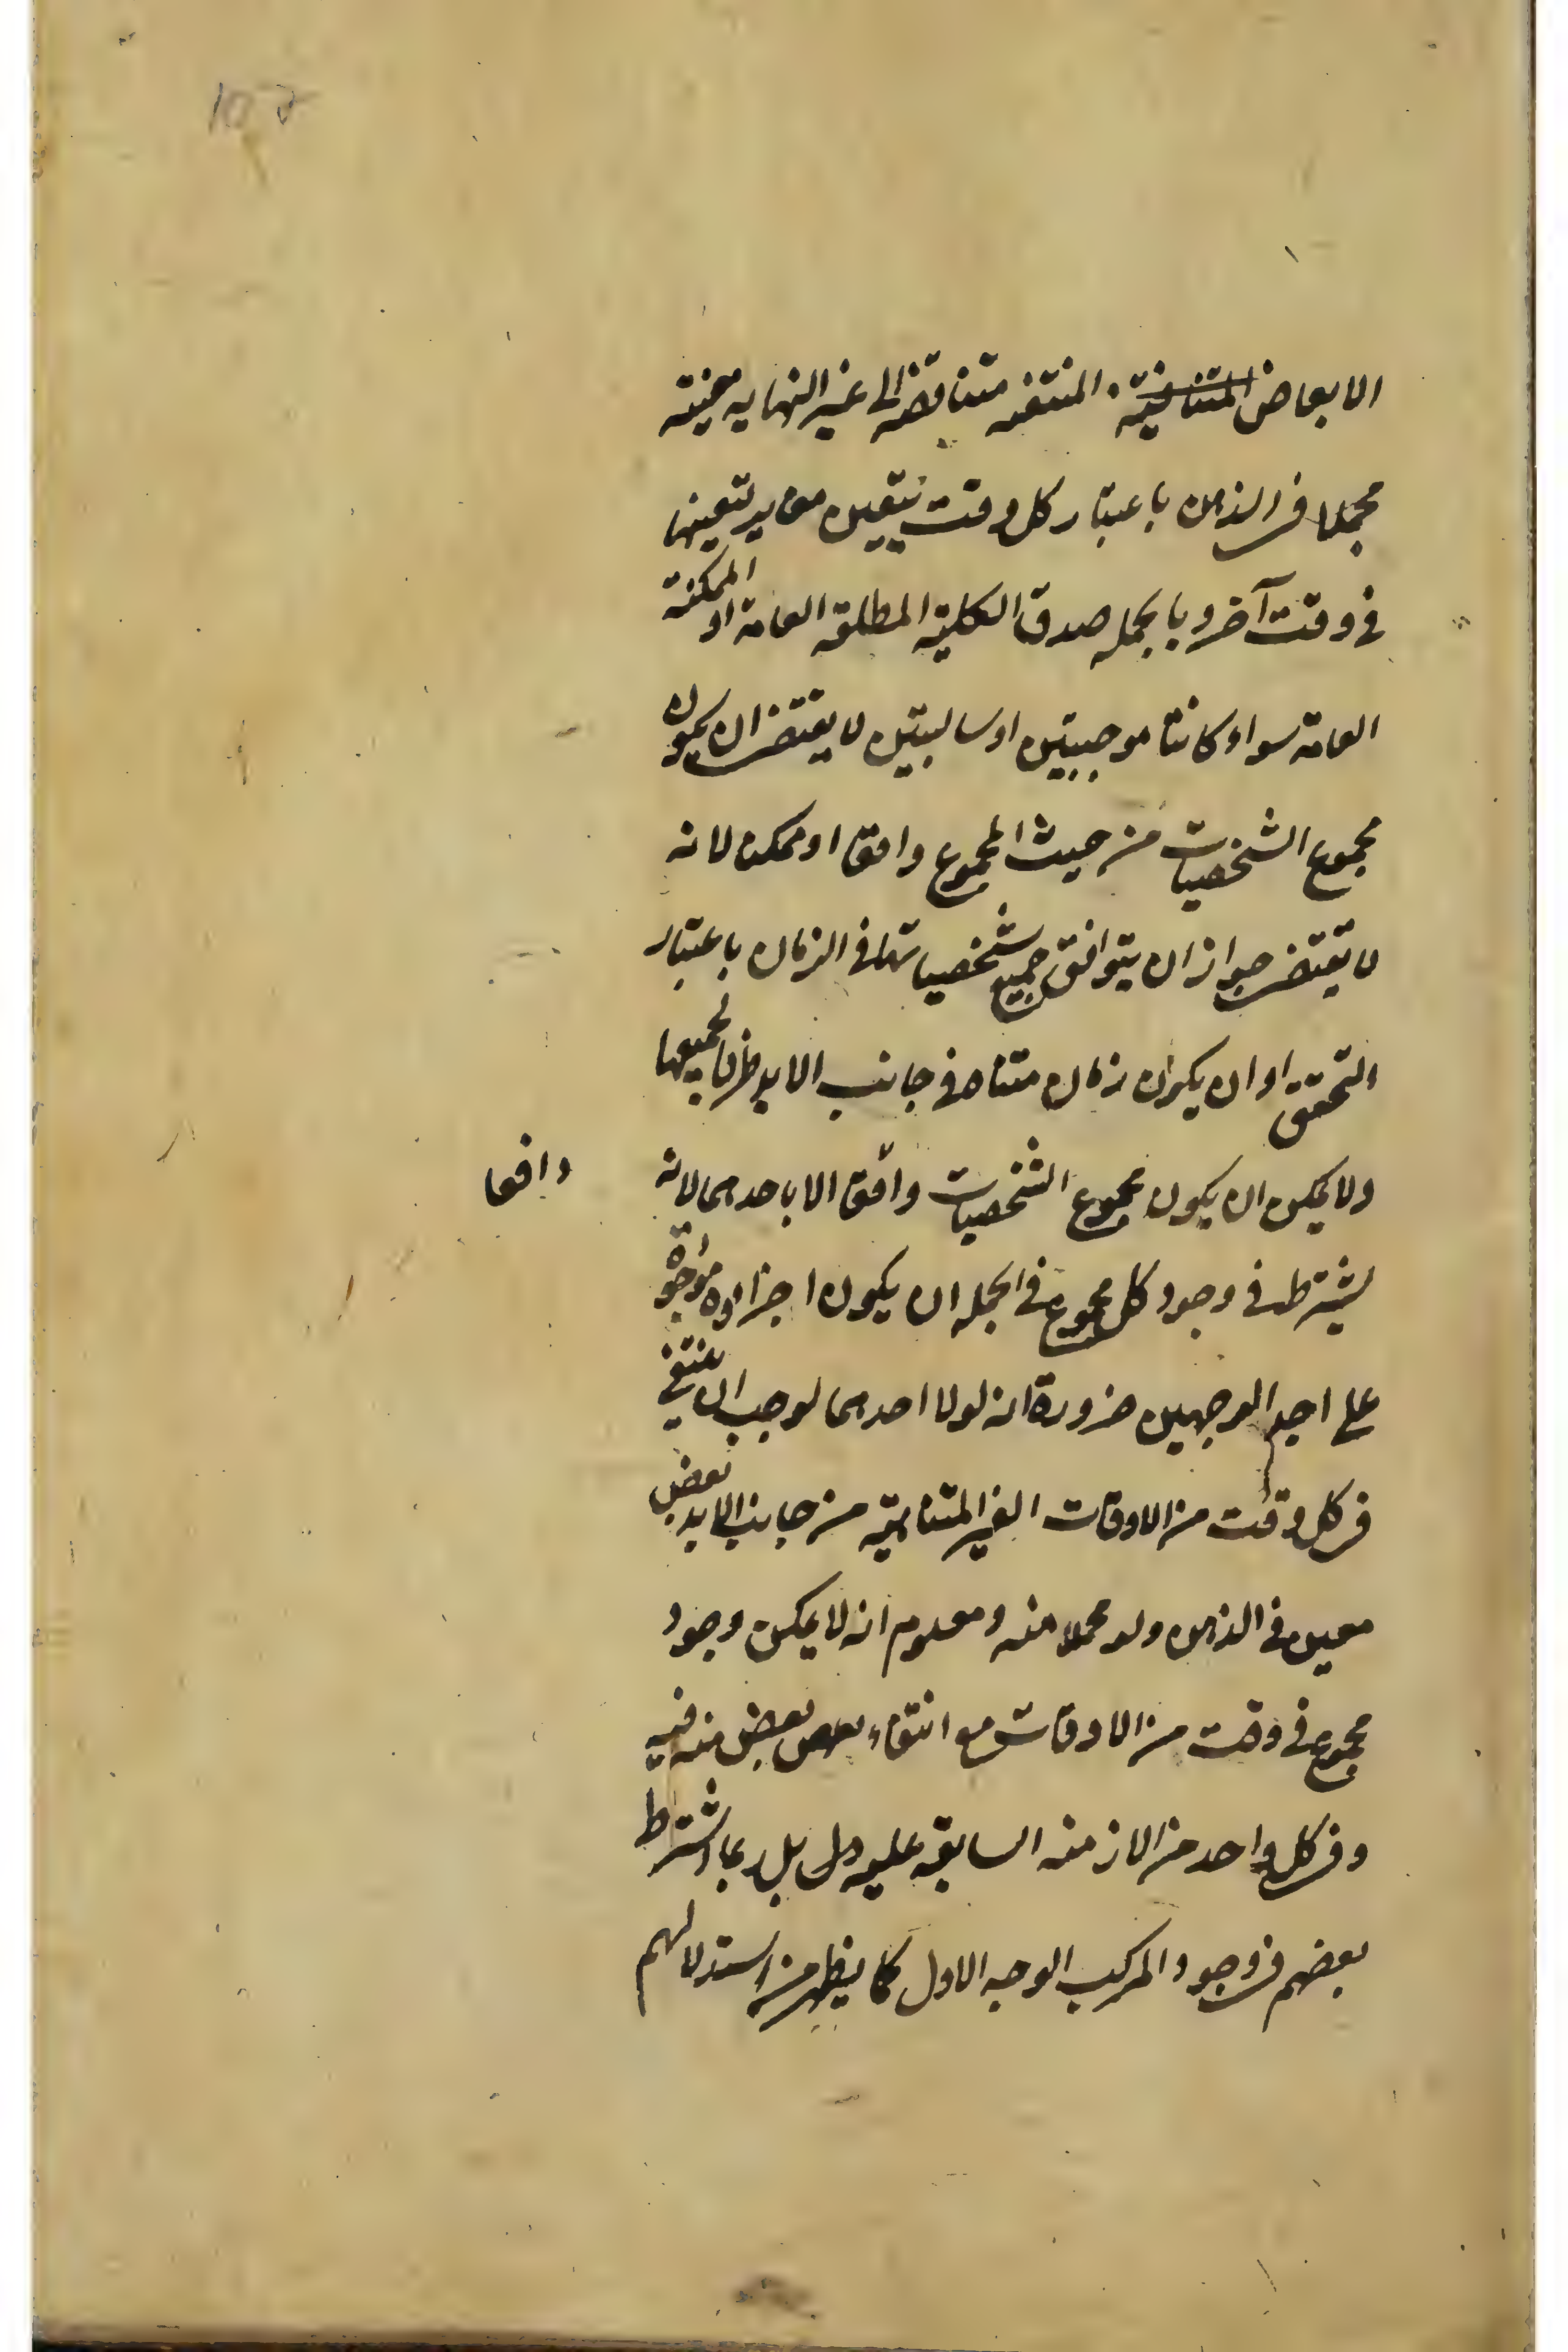 ١٥٧
الابعاض المتنافية المنتفيه متناقضه الى غير النهايه معينته
مجملا فى الذهن باعتبار كل وقت يتعين مغاير لتعينها
فى وقت آخر وبالجمله صدق الكلية المطلقه العامة او الممكنه
العامة سواء كانتا موجبتين او سالبتين لا يقتضى ان يكون
مجموع الشخصيات من حيث المجموع واقعا او ممكنا لانه
لا يقتضى جواز ان يتوافق جميع شخصياتها فى الزمان باعتبار
التحقق او ان يكون زمان متناه فى جانب الابد ظرفا لجميعها
ولا يمكن ان يكون مجموع الشخصيات واقعا الا باحدهما لانه
واقعا
يشترط فى وجود كل مجموع فى الجمله ان يكون اجزاؤه موجودة
على احد الوجهين ضرورة انه لولا احدهما لوجب ان ينتفى
فى كل وقت من الاوقات الغير المتناهية من جانب الابد بعض
معين فى الذهن ولو مجملا منه ومعلوم انه لا يمكن وجود
مجموع فى وقت من الاوقات مع انتفاء بعض بعض منه فيه
وفى كل واحد من الازمنه السابقه عليه بل ربما اشترط
بعضهم فى وجود المركب الوجه الاول كما يظهر من استدلالهم